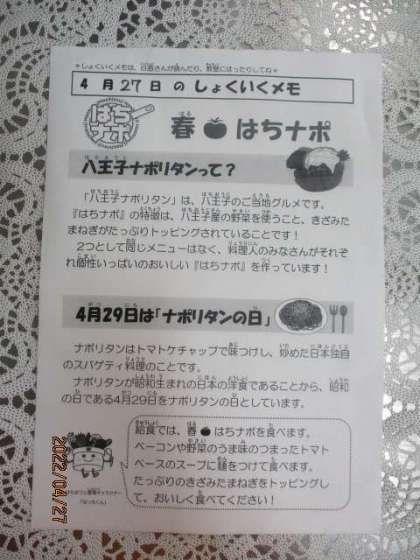 ＊しょくいくメモは、日直さんが読んだり、教室にはったりしてね＊
4月27日のしょくいくメモ
はち
ナポ
春🍅はちナポ
八王子ナポリタンって？
「八王子ナポリタン」は、八王子のご当地グルメです。
『はちナポ』の特徴は、八王子産の野菜を使うこと、きざみた
まねぎがたっぷりトッピングされていることです！
2つとして同じメニューはなく、料理人のみなさんがそれぞ
れ個性いっぱいのおいしい『はちナポ』を作っています！
4月29日は「ナポリタンの日」
ナポリタンはトマトケチャップで味つけし、炒めた日本独自
のスパゲティ料理のことです。
ナポリタンが昭和生まれの日本の洋食であることから、昭和
の日である4月29日をナポリタンの日としています。
給食では、春🍅はちナポを食べます。
ベーコンや野菜のうま味のつまったトマト
ベースのスープに麺をつけて食べます。
たっぷりのきざみたまねぎをトッピングし
て、おいしく食べてください！
2022/04/27